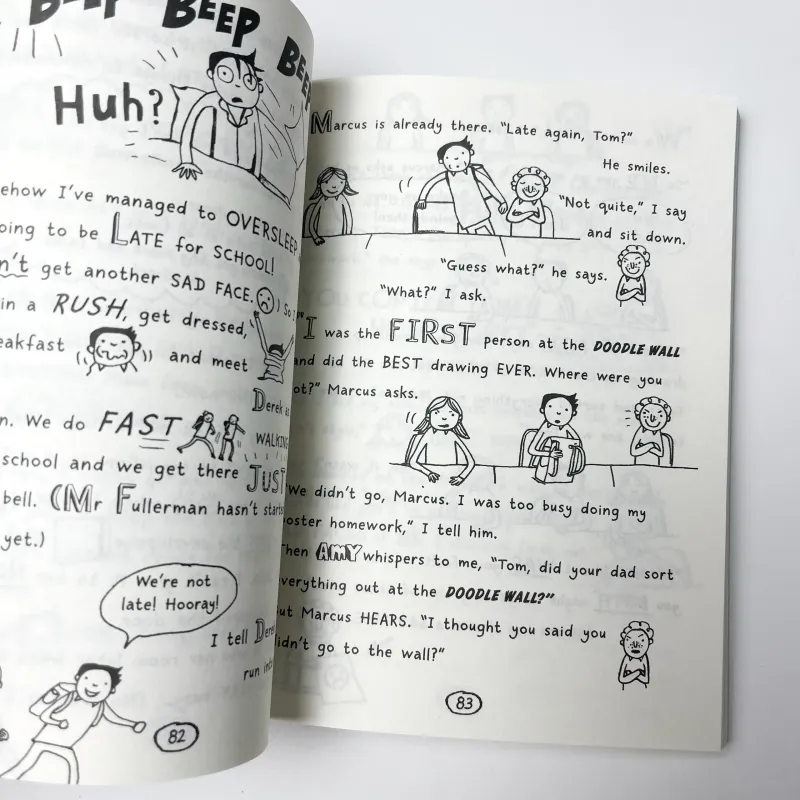 BEEP BEEP BEEP
Huh?
ehow I've managed to OVERSLEEP
oing to be LATE for SCHOOL!
n't get another SAD FACE. ) So
in a RUSH, get dressed,
eakfast and meet
Derek
n. We do FAST WALKING
school and we get there JUST
bell. (Mr Fullerman hasn't start
yet.)
We're not
late! Hooray!
I tell Derek
run int
82
Marcus is already there. "Late again, Tom?"
He smiles.
"Not quite," I say
and sit down.
"Guess what?" he says.
"What?" I ask.
I was the FIRST person at the DOODLE WALL
and did the BEST drawing EVER. Where were you
ot?" Marcus asks.
We didn't go, Marcus. I was too busy doing my
oster homework," I tell him.
Then AMY whispers to me, "Tom, did your dad sort
verything out at the DOODLE WALL?"
ut Marcus HEARS. "I thought you said you
idn't go to the wall?"
83